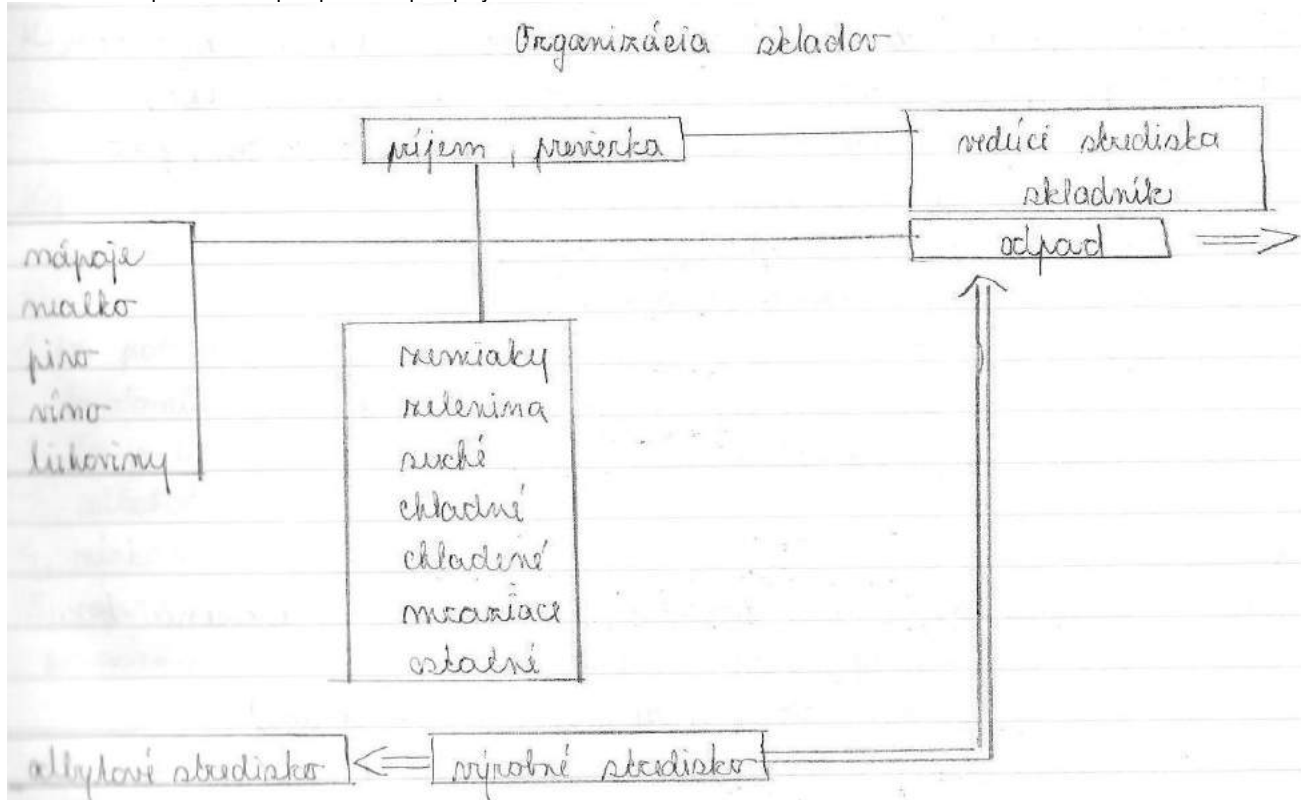 Organizácia skladov
príjem, previerka
vedúci strediska
skladník
odpad
nápoje
nealko
pivo
víno
liehoviny
zemiaky
zelenina
suché
chladné
chladené
mraziace
ostatné
odbytové stredisko
výrobné stredisko